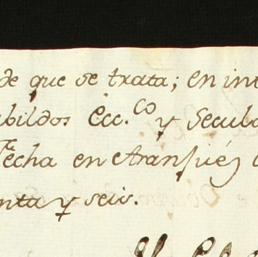 de que se trata; en int
bildos Ecc.co y Secula
Fecha en Aranjuéz
enta y seis.